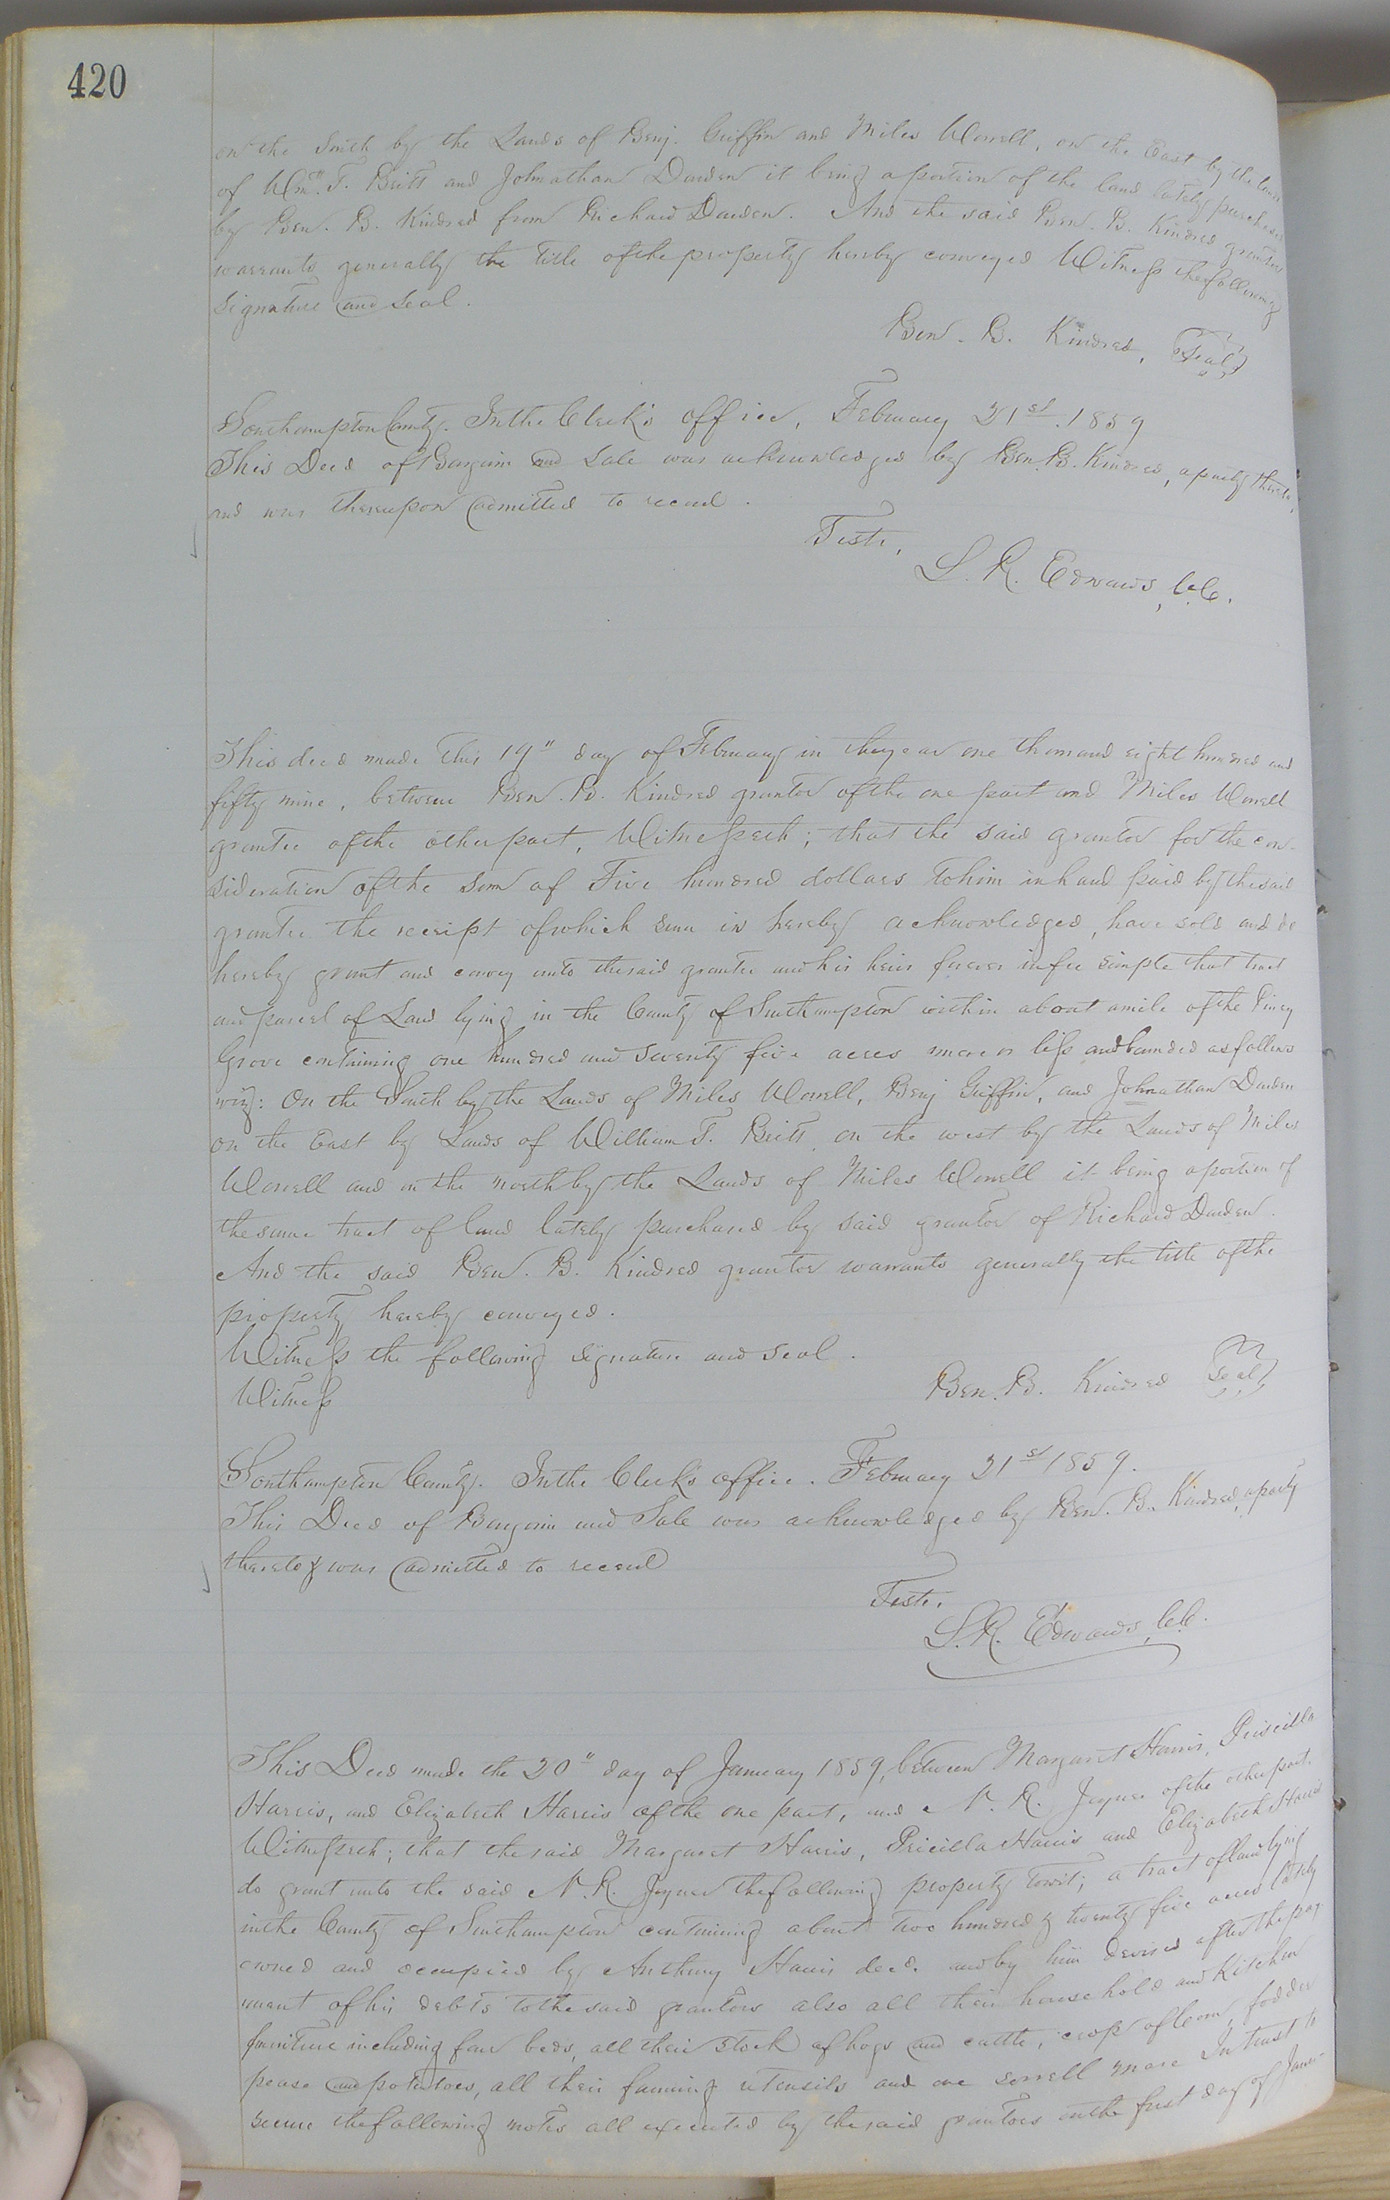 420
on the South by the Lands of Benj. Griffin and Miles Worrell, on the East by the lands
of Wm. T. Britt and Johnathan Darden it being a portion of the land lately purchased
by Ben. B. Kindred from Richard Darden. And the said Ben. B. Kindred grantor
warrants generally the title of the property hereby conveyed Witness the following
signature and seal.
Ben. B. Kindred, Seal
Southampton County. In the Clerk's office, February 21st. 1859
This Deed of Bargain and Sale was acknowledged by Ben. B. Kindred, a party thereto,
and was thereupon admitted to record.
Teste,
L. R. Edwards, C.C.
This deed made this 19" day of February in the year one thousand eight hundred and
fifty nine, between Ben. B. Kindred grantor of the one part and Miles Worrell
grantee of the other part, Witnesseth; that the said grantor for the con-
sideration of the sum of Five hundred dollars to him in hand paid by the said
grantee the receipt of which sum is hereby acknowledged, have sold and do
hereby grant and convey unto the said grantee and his heirs forever in fee simple that tract
and parcel of Land lying in the County of Southampton within about a mile of the Piney
Grove containing one hundred and seventy five acres more or less and bounded as follows
viz: On the South by the Lands of Miles Worrell, Benj Griffin, and Johnathan Darden
on the East by Lands of William T. Britt, on the west by the Lands of Miles
Worrell and on the north by the Lands of Miles Worrell it being a portion of
the same tract of land lately purchased by said grantor of Richard Darden.
And the said Ben. B. Kindred grantor warrants generally the title of the
property hereby conveyed.
Witness the following signature and seal.
Witness
Ben. B. Kindred Seal
Southampton County. In the Clerk's office. February 21st 1859.
This Deed of Bargain and Sale was acknowledged by Ben. B. Kindred, a party
thereto & was admitted to record
Teste,
L. R. Edwards, C.C.
This Deed made the 20" day of January 1859, between Margaret Harris, Priscilla
Harris, and Elizabeth Harris of the one part, and N. R. Joyner of the other part.
Witnesseth; that the said Margaret Harris, Pricilla Harris and Elizabeth Harris
do grant unto the said N. R. Joyner the following property towit; a tract of land lying
in the County of Southampton containing about two hundred & twenty five acres lately
owned and occupied by Anthony Harris decd. and by him devised after the pay-
ment of his debts to the said grantors also all their household and kitchen
furniture including four beds, all their stock of hogs and cattle, crop of corn, fodder
pease and potatoes, all their farming utensils and one sorrell mare In trust to
secure the following notes all executed by the said grantors on the first day of Janu-